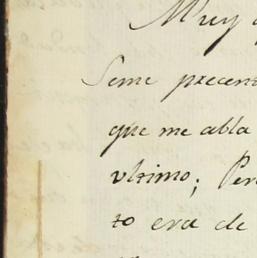 Muy
Seme precen
que me abla
vltimo; Per
to era de